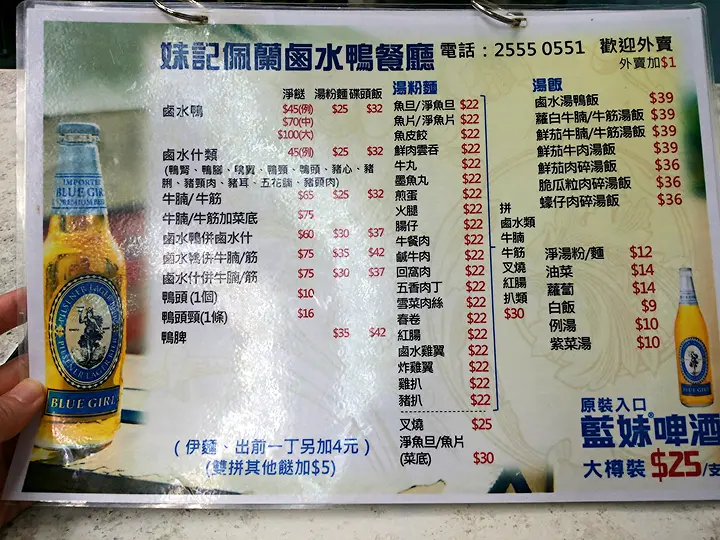 妹記佩蘭鹵水鴨餐廳 電話：2555 0551 歡迎外賣
外賣加$1
淨餸 湯粉麵 碟頭飯
鹵水鴨 $45(例) $25 $32
$70(中)
$100(大)
鹵水什類 45(例) $25 $32
(鴨腎、鴨腳、鴨翼、鴨頸、鴨頭、豬心、豬
脷、豬頸肉、豬耳、五花腩、豬頭肉)
牛腩/牛筋 $65 $25 $32
牛腩/牛筋加菜底 $75
鹵水鴨併鹵水什 $60 $30 $37
鹵水鴨併牛腩/筋 $75 $35 $42
鹵水什併牛腩/筋 $75 $30 $37
鴨頭(1個) $10
鴨頭頸(1條) $16
鴨脾 $35 $42
(伊麵、出前一丁另加4元)
(雙拼其他餸加$5)
湯粉麵
魚旦/淨魚旦 $22
魚片/淨魚片 $22
魚皮餃 $22
鮮肉雲吞 $22
牛丸 $22
墨魚丸 $22
煎蛋 $22
火腿 $22
腸仔 $22
牛餐肉 $22
鹹牛肉 $22
回窩肉 $22
五香肉丁 $22
雪菜肉絲 $22
春卷 $22
紅腸 $22
鹵水雞翼 $22
炸雞翼 $22
雞扒 $22
豬扒 $22
叉燒 $25
淨魚旦/魚片
(菜底) $30
拼
鹵水類
牛腩
牛筋
叉燒
紅腸
扒類
$30
湯飯
鹵水湯鴨飯 $39
蘿白牛腩/牛筋湯飯 $39
鮮茄牛腩/牛筋湯飯 $39
鮮茄牛肉湯飯 $39
鮮茄肉碎湯飯 $36
脆瓜粒肉碎湯飯 $36
蠔仔肉碎湯飯 $36
淨湯粉/麵 $12
油菜 $14
蘿蔔 $14
白飯 $9
例湯 $10
紫菜湯 $10
原裝入口
藍妹®啤酒
大樽裝 $25/支
IMPORTED
BLUE GIRL
PREMIUM BEER
PILSENER LAGER BEER
BLUE GIRL